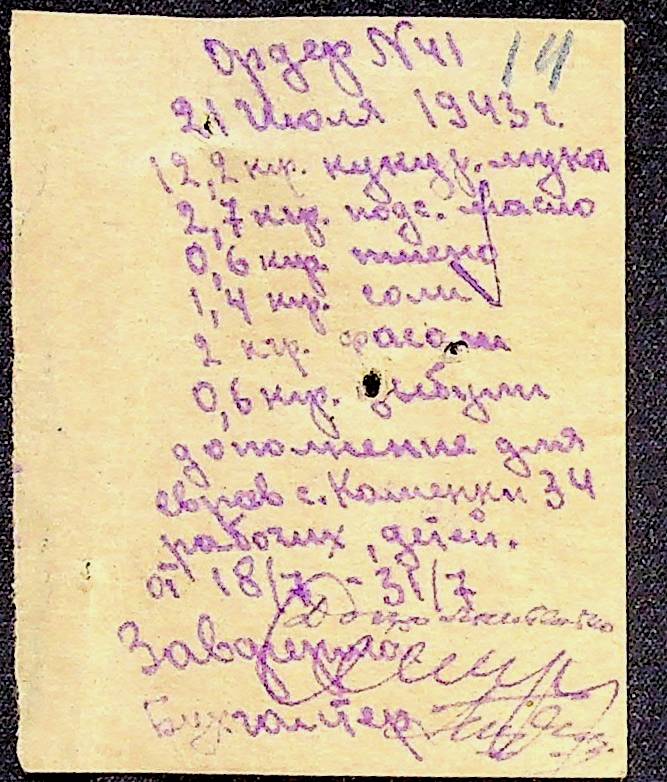 Ордер №41 14
21 Июля 1943 г.
12,2 кгр. кукур. мука
2,7 кгр. подс. масло
0,6 кгр. пшено
1,4 кгр. соли
2 кгр. фасоли
0,6 кгр. цыбули
дополнение для
евреев с. Каменки 34
рабочих, детей.
от 18/7 - 31/7
Бухгалтер